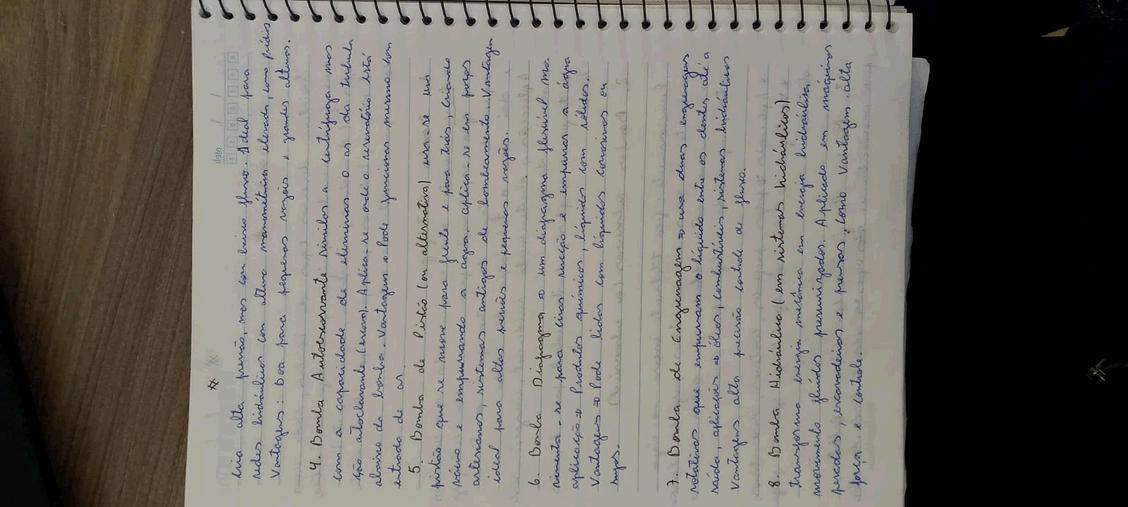 data
cria alta pressão, mas com baixo fluxo. Ideal para
redes hidráulicas com altura manométrica elevada, como prédios
Vantagens: Boa para pequenas vazões e grandes alturas.
4. Bomba Autoescorvante similar a centrífuga mas
com a capacidade de eliminar o ar da tubula
ção autoclavante (escova). Aplica-se onde o reservatório está
abaixo da bomba. Vantagem Pode funcionar mesmo com
entrada de ar
5. Bomba de Pistão (ou alternativa) usa-se um
pistão que se move para frente e para trás, criando
vácuo e empurrando a água. aplica-se em poços
artesianos, sistemas antigos de bombeamento. Vantagem
ideal para altas pressões e pequenas vazões.
6. Bomba Diafragma um diafragma flexível mo
vimenta-se para criar sucção e empurrar a água
aplicação Produtos químicos, líquidos com sólidos.
Vantagens Pode lidar com líquidos corrosivos ou
sujos.
7. Bomba de Engrenagem usa duas engrenagens
rotativas que empurram o líquido entre os dentes até a
saída, aplicação óleos, combustíveis, sistemas hidráulicos
Vantagens alta precisão controle de fluxo.
8. Bomba Hidráulica (em sistemas hidráulicos)
transforma energia mecânica em energia hidráulica,
movimento fluídos pressurizados. Aplicado em máquinas
pesadas, escavadeiras e prensas, como Vantagem alta
força e controle.